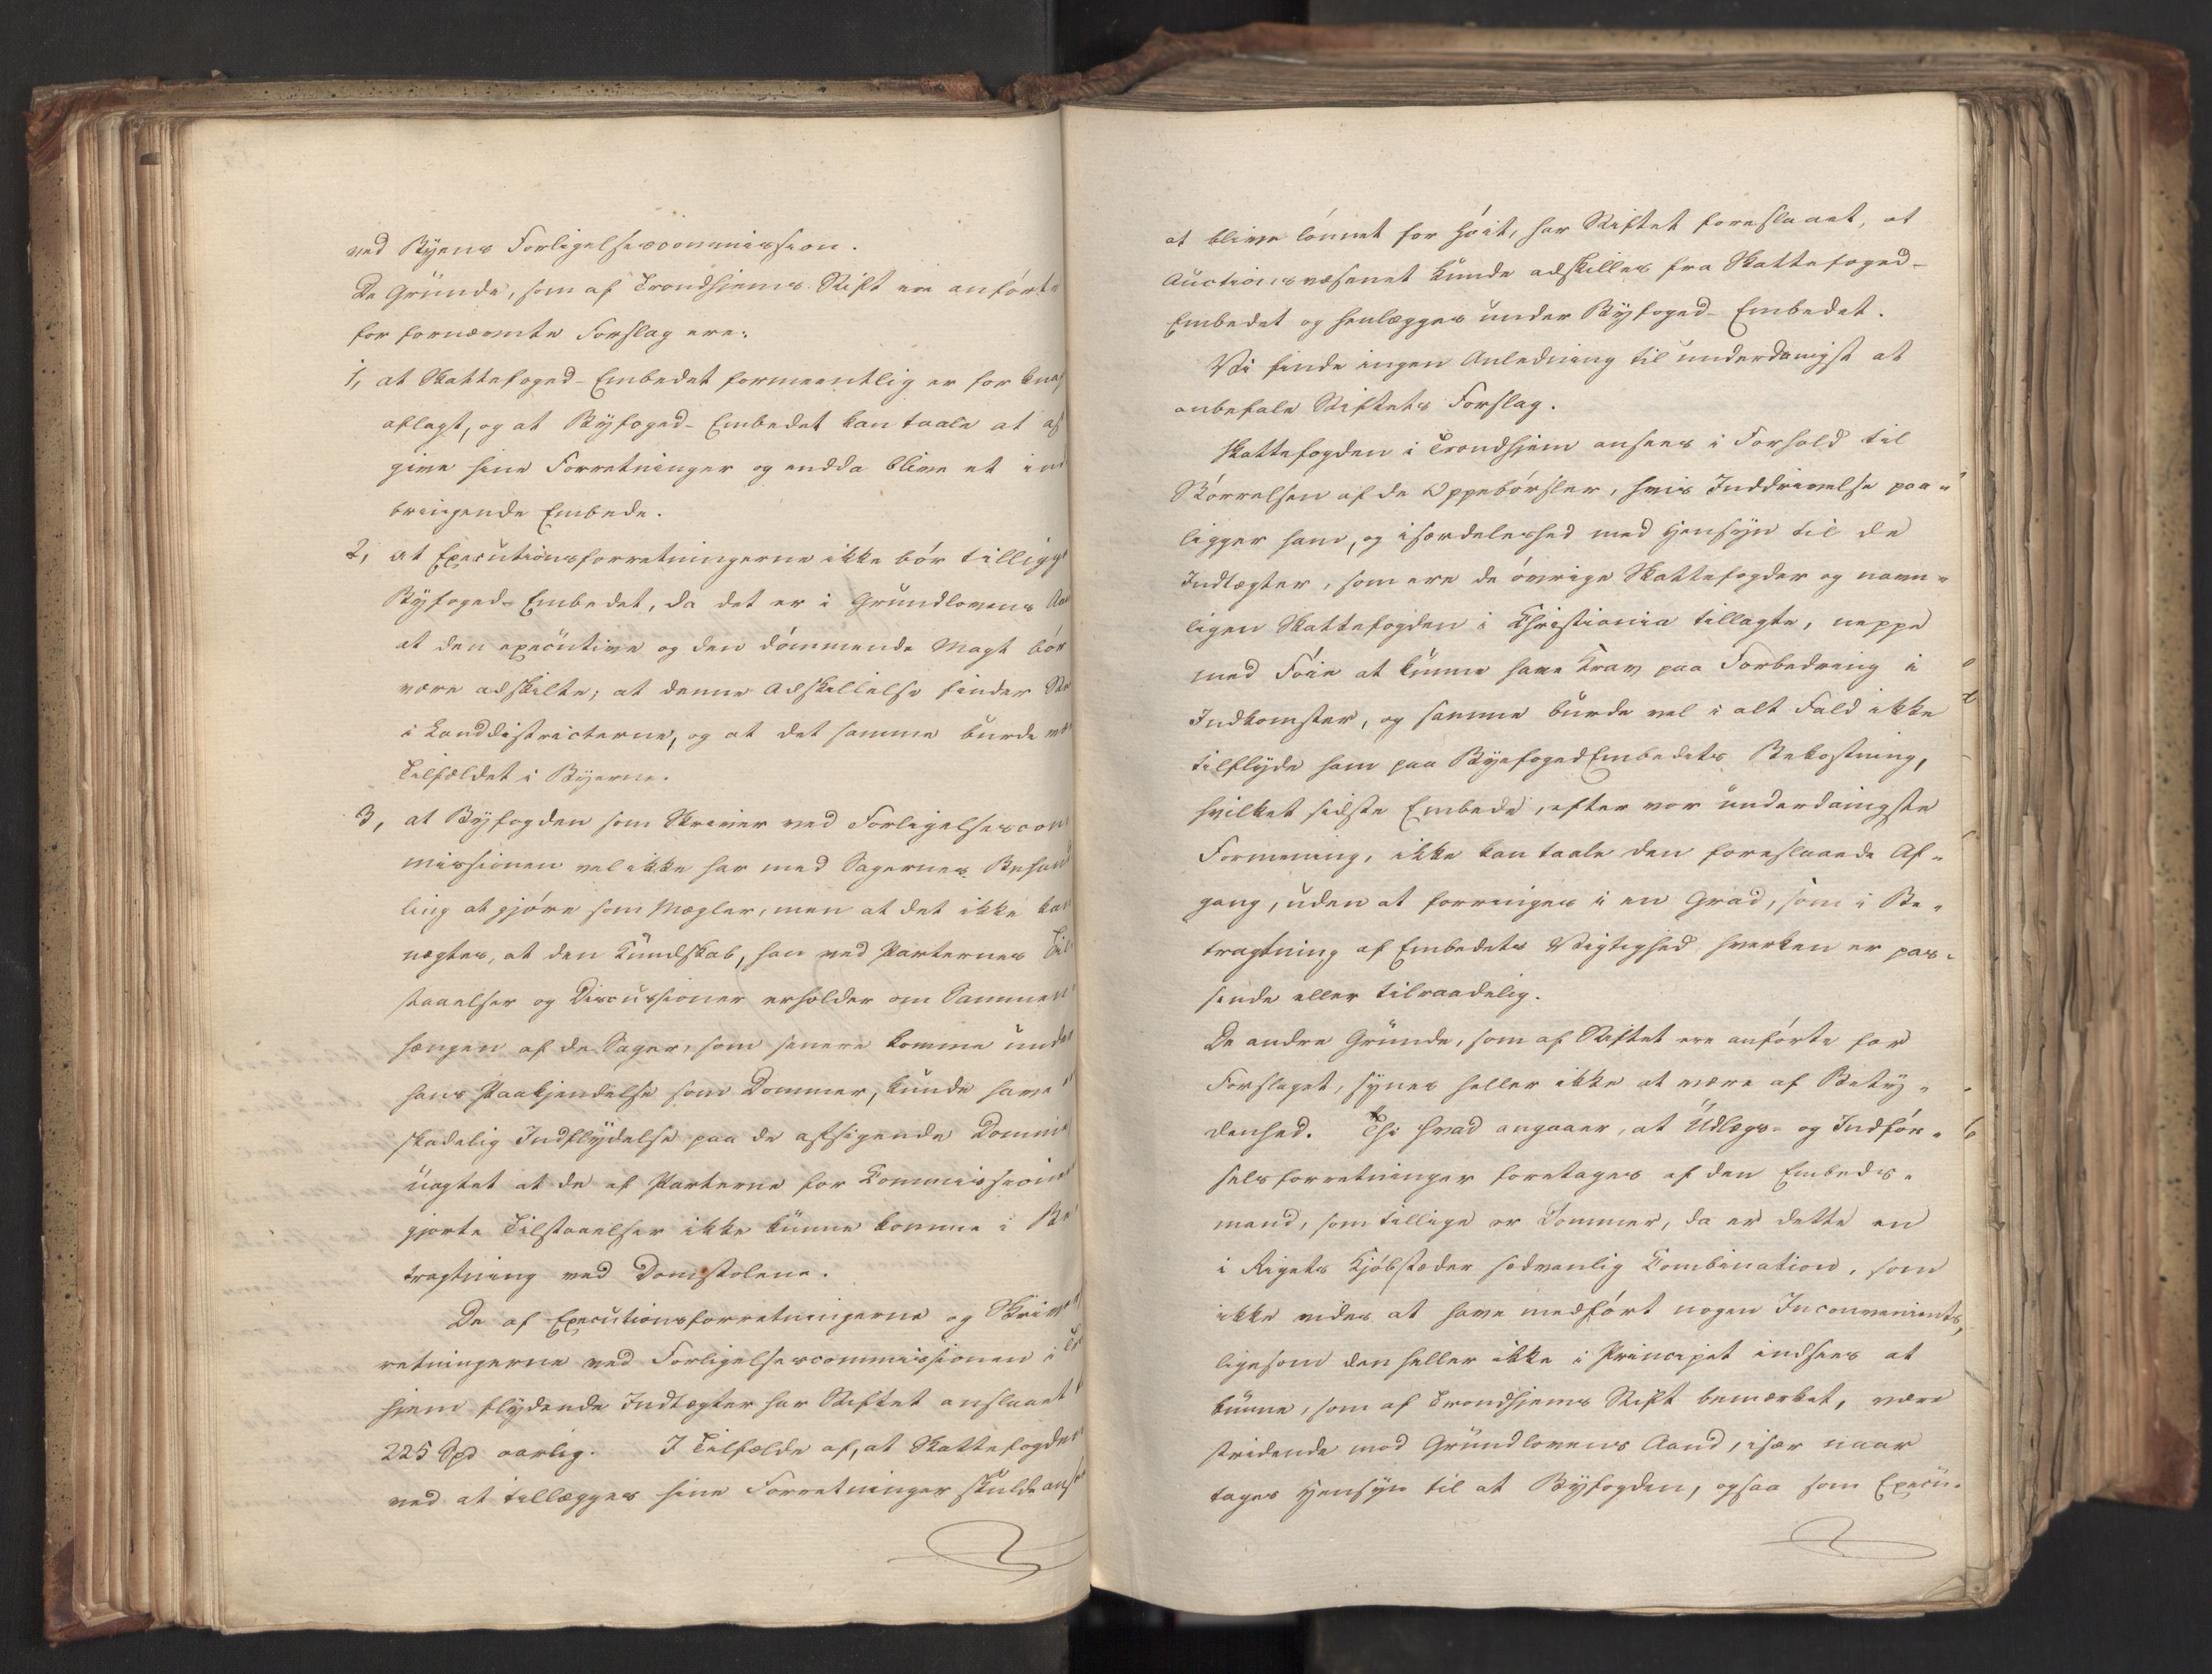 ved Byens Forligelsescommission.
De Grunde, som af Trondhjems Stift ere anførte
for fornævnte Forslag ere:
1, at Skattefoged-Embedet formeentlig er for knap
aflagt, og at Byfoged-Embedet kan taale at af
give sine Forretninger og endda blive et ind
bringende Embede.
2, at Executionsforretningerne ikke bør tilligge
Byfoged-Embedet, da det er i Grundlovens Aa
at den executive og den dømmende Magt bør
være adskilte; at denne Adskillelse finder St
i Landdistricterne, og at det samme burde væ
Tilfældet i Byerne.
3, at Byfogden som Skriver ved Forligelsescom
missionen vel ikke har med Sagernes Behand
ling at gjøre som Mægler, men at det ikke kan
nægtes, at den Kundskab, han ved Parternes Til
staaelser og Discussioner erholder om Sammen
hængen af de Sager, som senere komme under
hans Paakjendelse som Dommer, kunde have
skadelig Indflydelse paa de afsigende Domme
uagtet at de af Parterne for Commissionen
gjorte Tilstaaelser ikke kunne komme i Be
tragtning ved Domstolene.
De af Executionsforretningerne og Skriver
retningerne ved Forligelsescommissionen i Tr
hjem flydende Indtægter har Stiftet anslaaet
225 Spd aarlig. I Tilfælde af, at Skattefogden
ved at tillægges hine Forretninger skulde ans
at blive lønnet for høit, har Stiftet foreslaaet, at
Auctionsvæsenet kunde adskilles fra Skattefoged-
Embedet og henlægges under Byfoged-Embedet.
Vi finde ingen Anledning til underdanigst at
anbefale Stiftets Forslag.
Skattefogden i Trondhjem ansees i Forhold til
Størrelsen af de Oppebørsler, hvis Inddrivelse paa-
ligger ham, og isærdeleshed med Hensyn til de
Indtægter, som ere de øvrige Skattefogder og navn-
ligen Skattefogden i Christiania tillagte, neppe
med Føie at kunne have Krav paa Forbedring i
Indkomster, og samme burde vel i alt Fald ikke
tilflyde ham paa Byefoged Embedets Bekostning,
hvilket sidste Embede, efter vor underdanigste
Formening, ikke kan taale den foreslaaede Af-
gang, uden at forringes i en Grad, som i Be-
tragtning af Embedets Vigtighed hverken er pas-
sende eller tilraadelig.
De andre Grunde, som af Stiftet ere anførte for
Forslaget, synes heller ikke at være af Betyd-
denhed. Thi hvad angaaer, at Udlægs- og Indfør-
selsforretninger foretages af den Embeds-
mand, som tillige er Dommer, da er dette en
i Rigets Kjøbstæder sædvanlig Combination, som
ikke vides at have medført nogen Inconvenients,
ligesom den heller ikke i Principet indsees at
kunne, som af Trondhjems Stift bemærket, være
stridende mod Grundlovens Aand, især naar
tages Hensyn til at Byfogden, ogsaa som Execu-